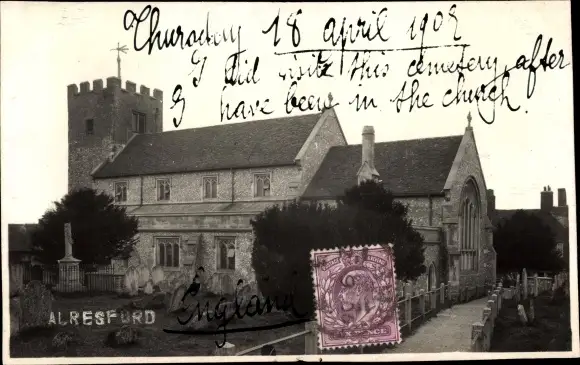 Thursday 18 april 1902
I did visite this cemetery, after
I have been in the church.
England
ALRESFORD